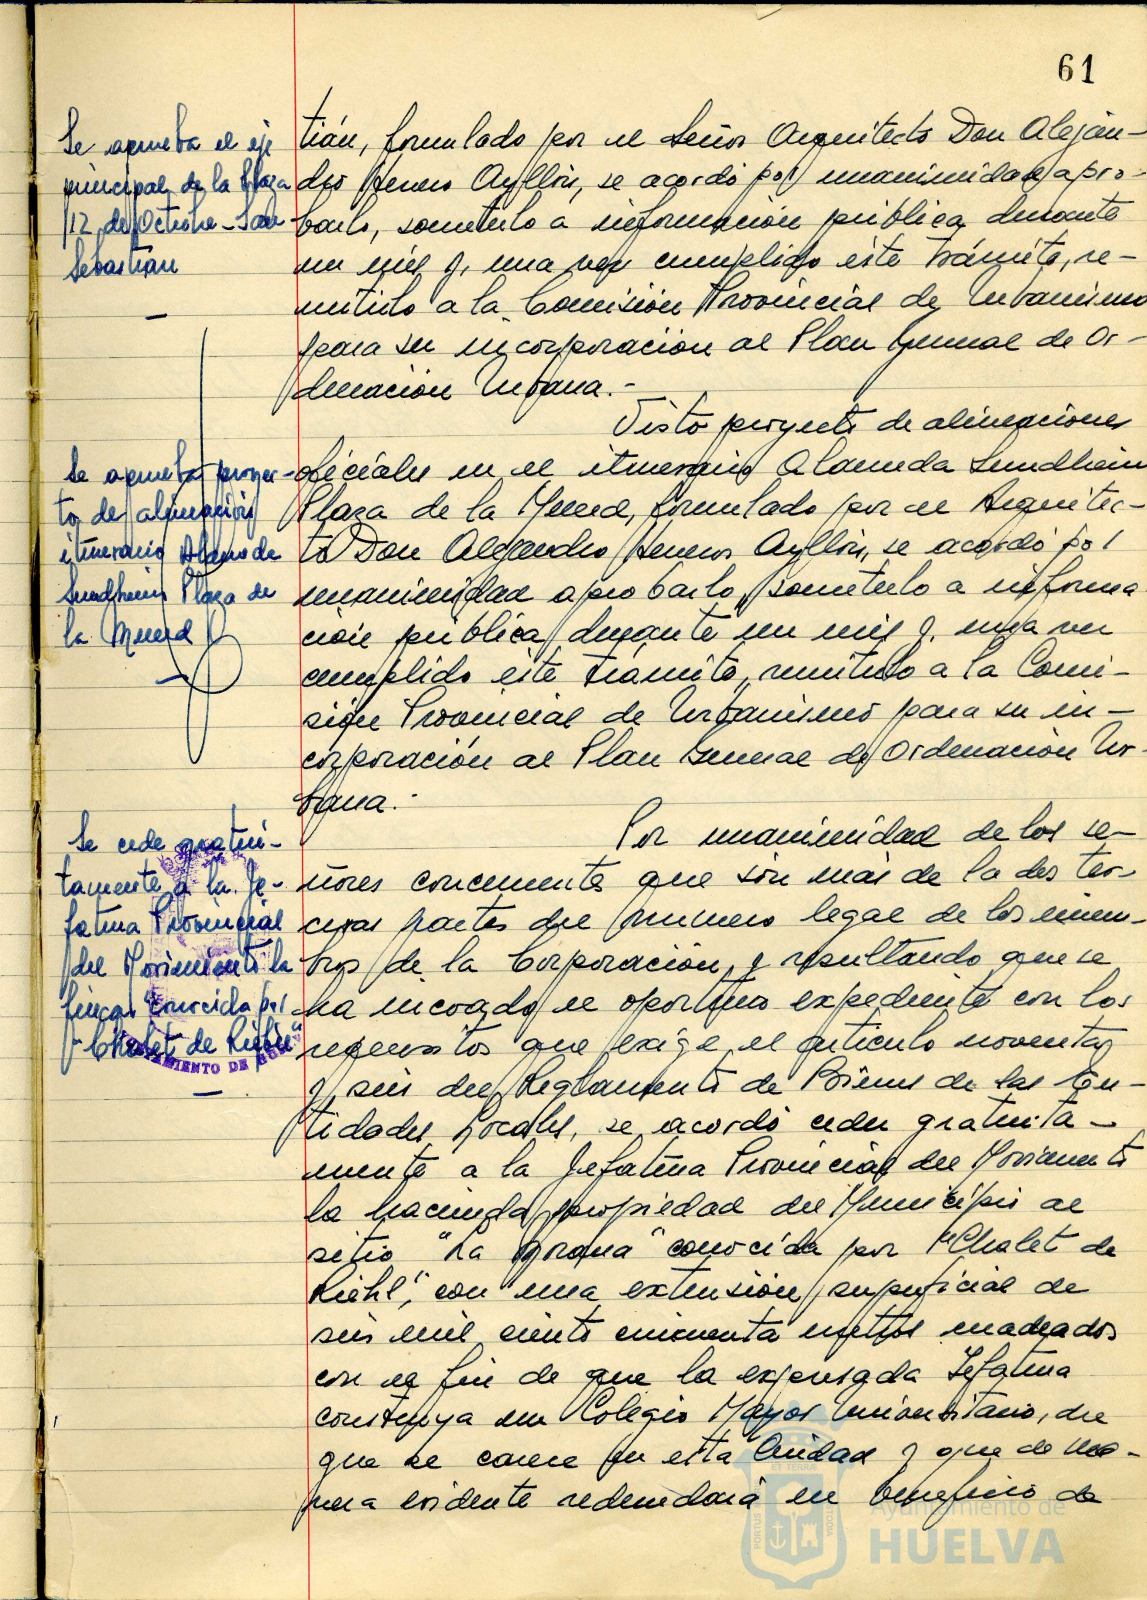 61
Se aprueba el eje
principal de la Plaza
12 de Octubre - San
Sebastián
tián, formulado por el Señor Arquitecto Don Aleján-
dro Herrero Ayllón, se acordó por unanimidad apro-
barlo, someterlo a información pública durante
un mes y, una vez cumplido éste trámite, re-
mitirlo a la Comisión Provincial de Urbanismo
para su incorporación al Plan General de Or-
denación Urbana.-
Se aprueba proyec-
to de alineación
itinerario Alameda
Sundheim Plaza de
la Merced
Visto proyecto de alineaciones
oficiales en el itinerario Alameda Sundheim
Plaza de la Merced, formulado por el Arquitec-
to Don Alejandro Herrero Ayllón, se acordó por
unanimidad aprobarlo, someterlo a informa
ción pública durante un mes y, una vez
cumplido éste trámite, remitirlo a la Comi-
sión Provincial de Urbanismo para su in-
corporación al Plan General de Ordenación Ur-
bana.-
Se cede gratui-
tamente a la Je-
fatura Provincial
del Movimiento la
finca conocida por
"Chalet de Riehl"
AYUNTAMIENTO DE
Por unanimidad de los se-
ñores concurrente que són más de la dos ter-
ceras partes del número legal de los miem-
bros de la Corporación, y resultando que se
ha incoado el oportuno expediente con los
requisitos que exige el artículo noventa
y seis del Reglamento de Bienes de las En-
tidades Locales, se acordó ceder gratuita-
mente a la Jefatura Provincial del Movimiento
la hacienda propiedad del Municipio al
sitio "La Morana" conocida por "Chalet de
Riehl", con una extensión superficial de
seis mil ciento cincuenta metros cuadrados
con el fin de que la expresada Jefatura
construya un Colegio Mayor Universitario, del
que se carece en esta Ciudad y que de ma-
nera evidente redundará en beneficio de
Ayuntamiento de
HUELVA